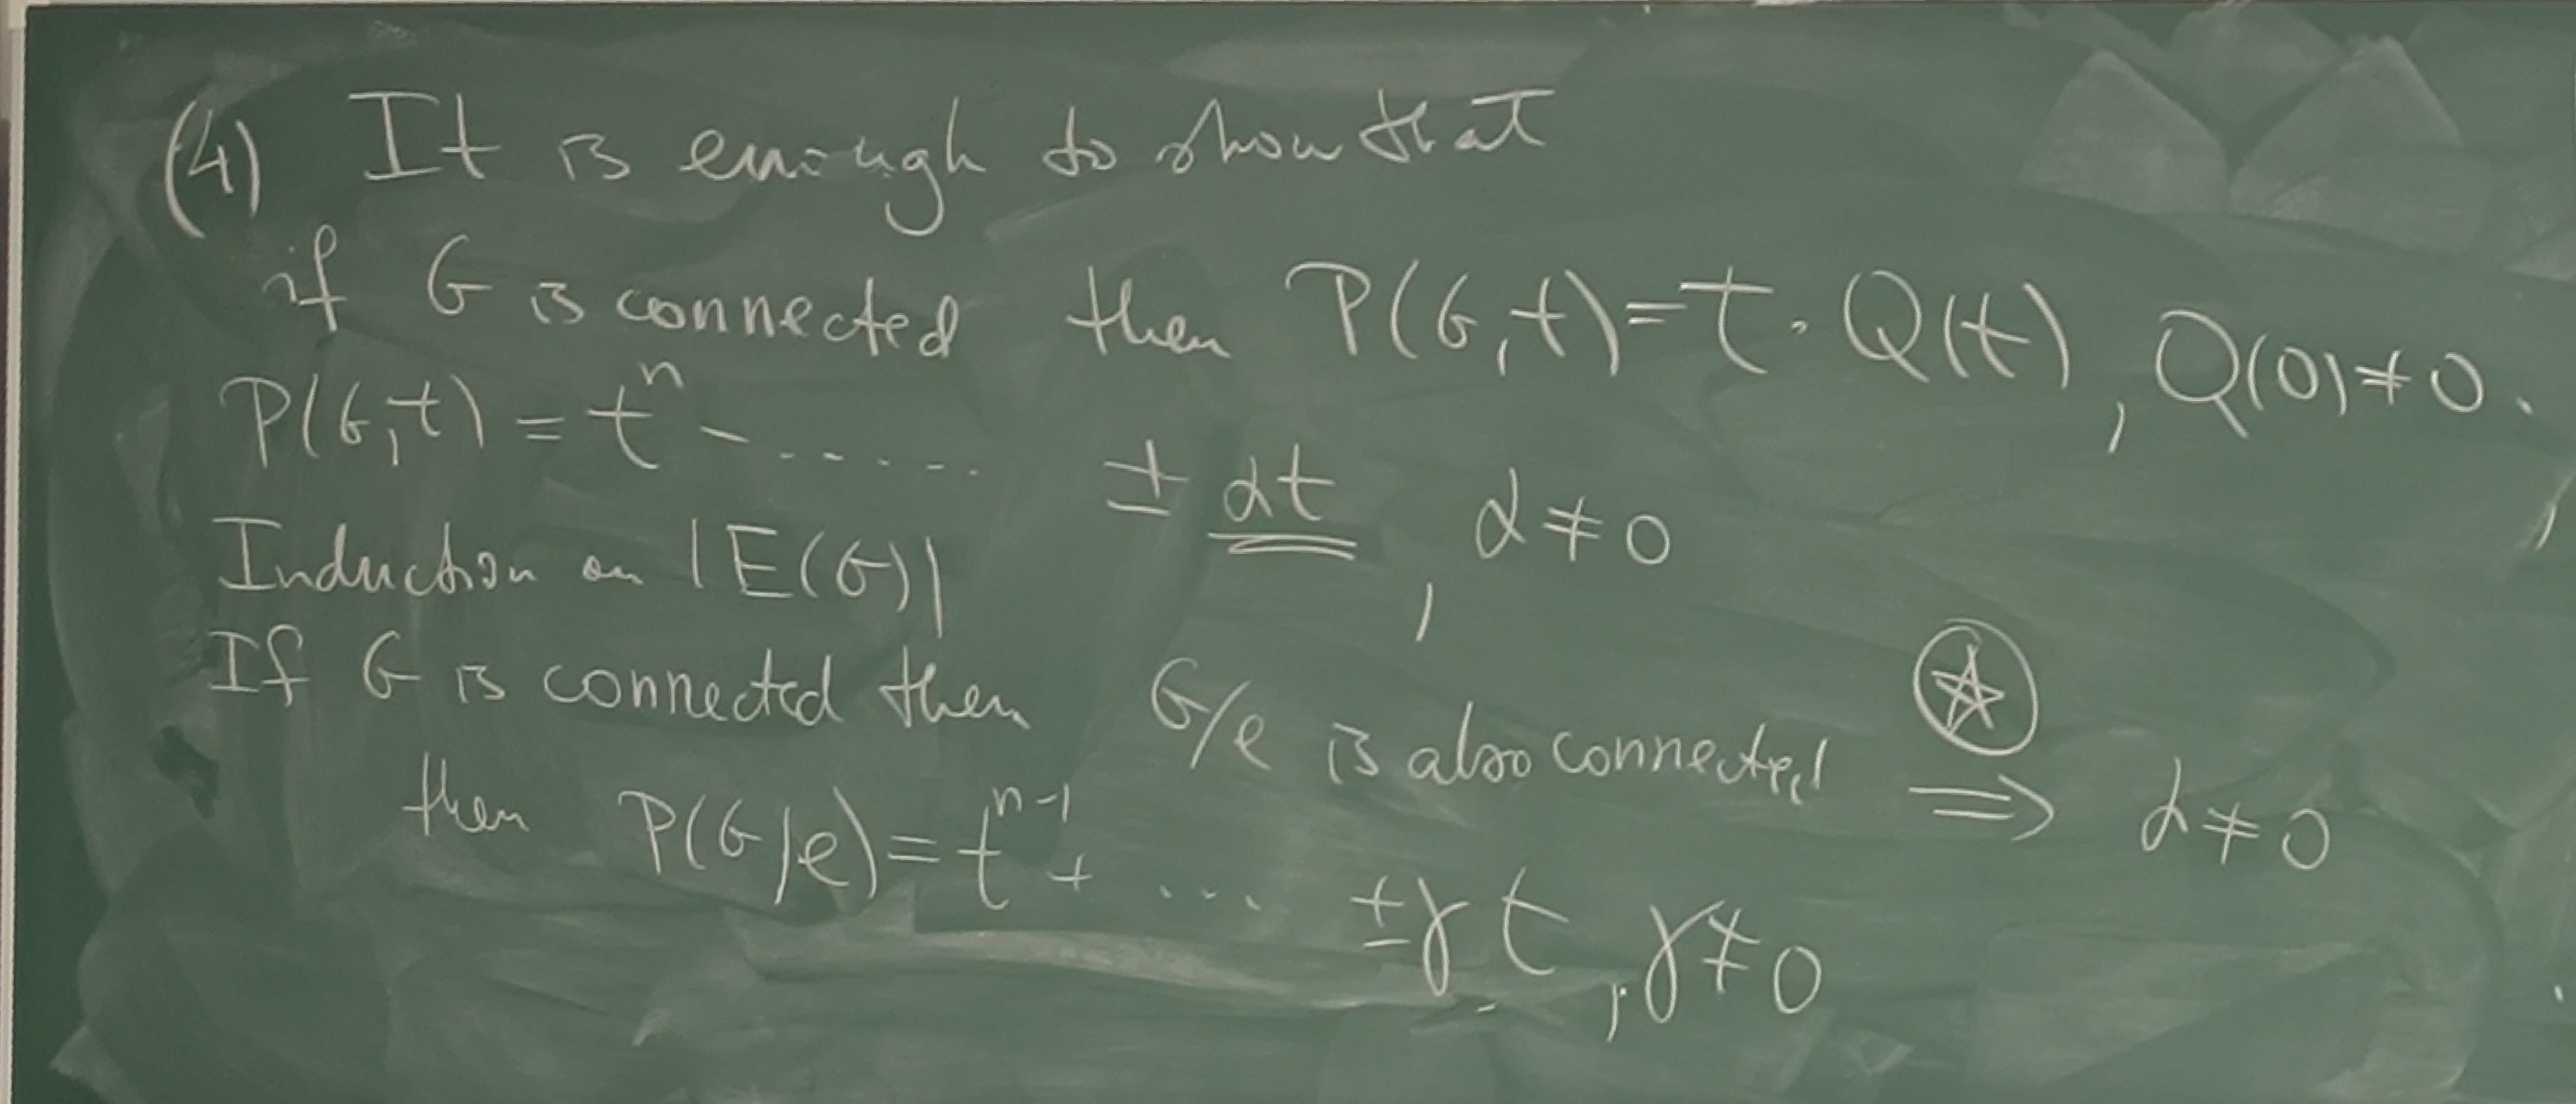 (4) It is enough to show that
if G is connected then P(G,t)=t·Q(t), Q(0)≠0.
P(G,t)=tⁿ-...... ± αt, α≠0
Induction on |E(G)|
If G is connected then G/e is also connected ⍟ ⟹ α≠0
then P(G/e)=tⁿ⁻¹+ ... ±γt, γ≠0